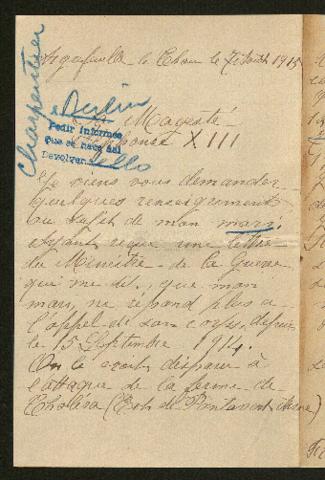 Charpentier
le 7 Août 1915
Berlin
Sa Majesté
Alphonse XIII
Pedir informes
que se hace así
Devolver
sello
Je viens vous demander
quelques renseignements
au sujet de mon mari
ayant reçue une lettre
du Ministre de la Guerre
qui me dis, que mon
mari, ne repond plus a
l'appel de son corps, depuis
le 15 Septembre 1914.
On le croit disparu à
l'attaque de la ferme de
Choléra (Est de Pontavert